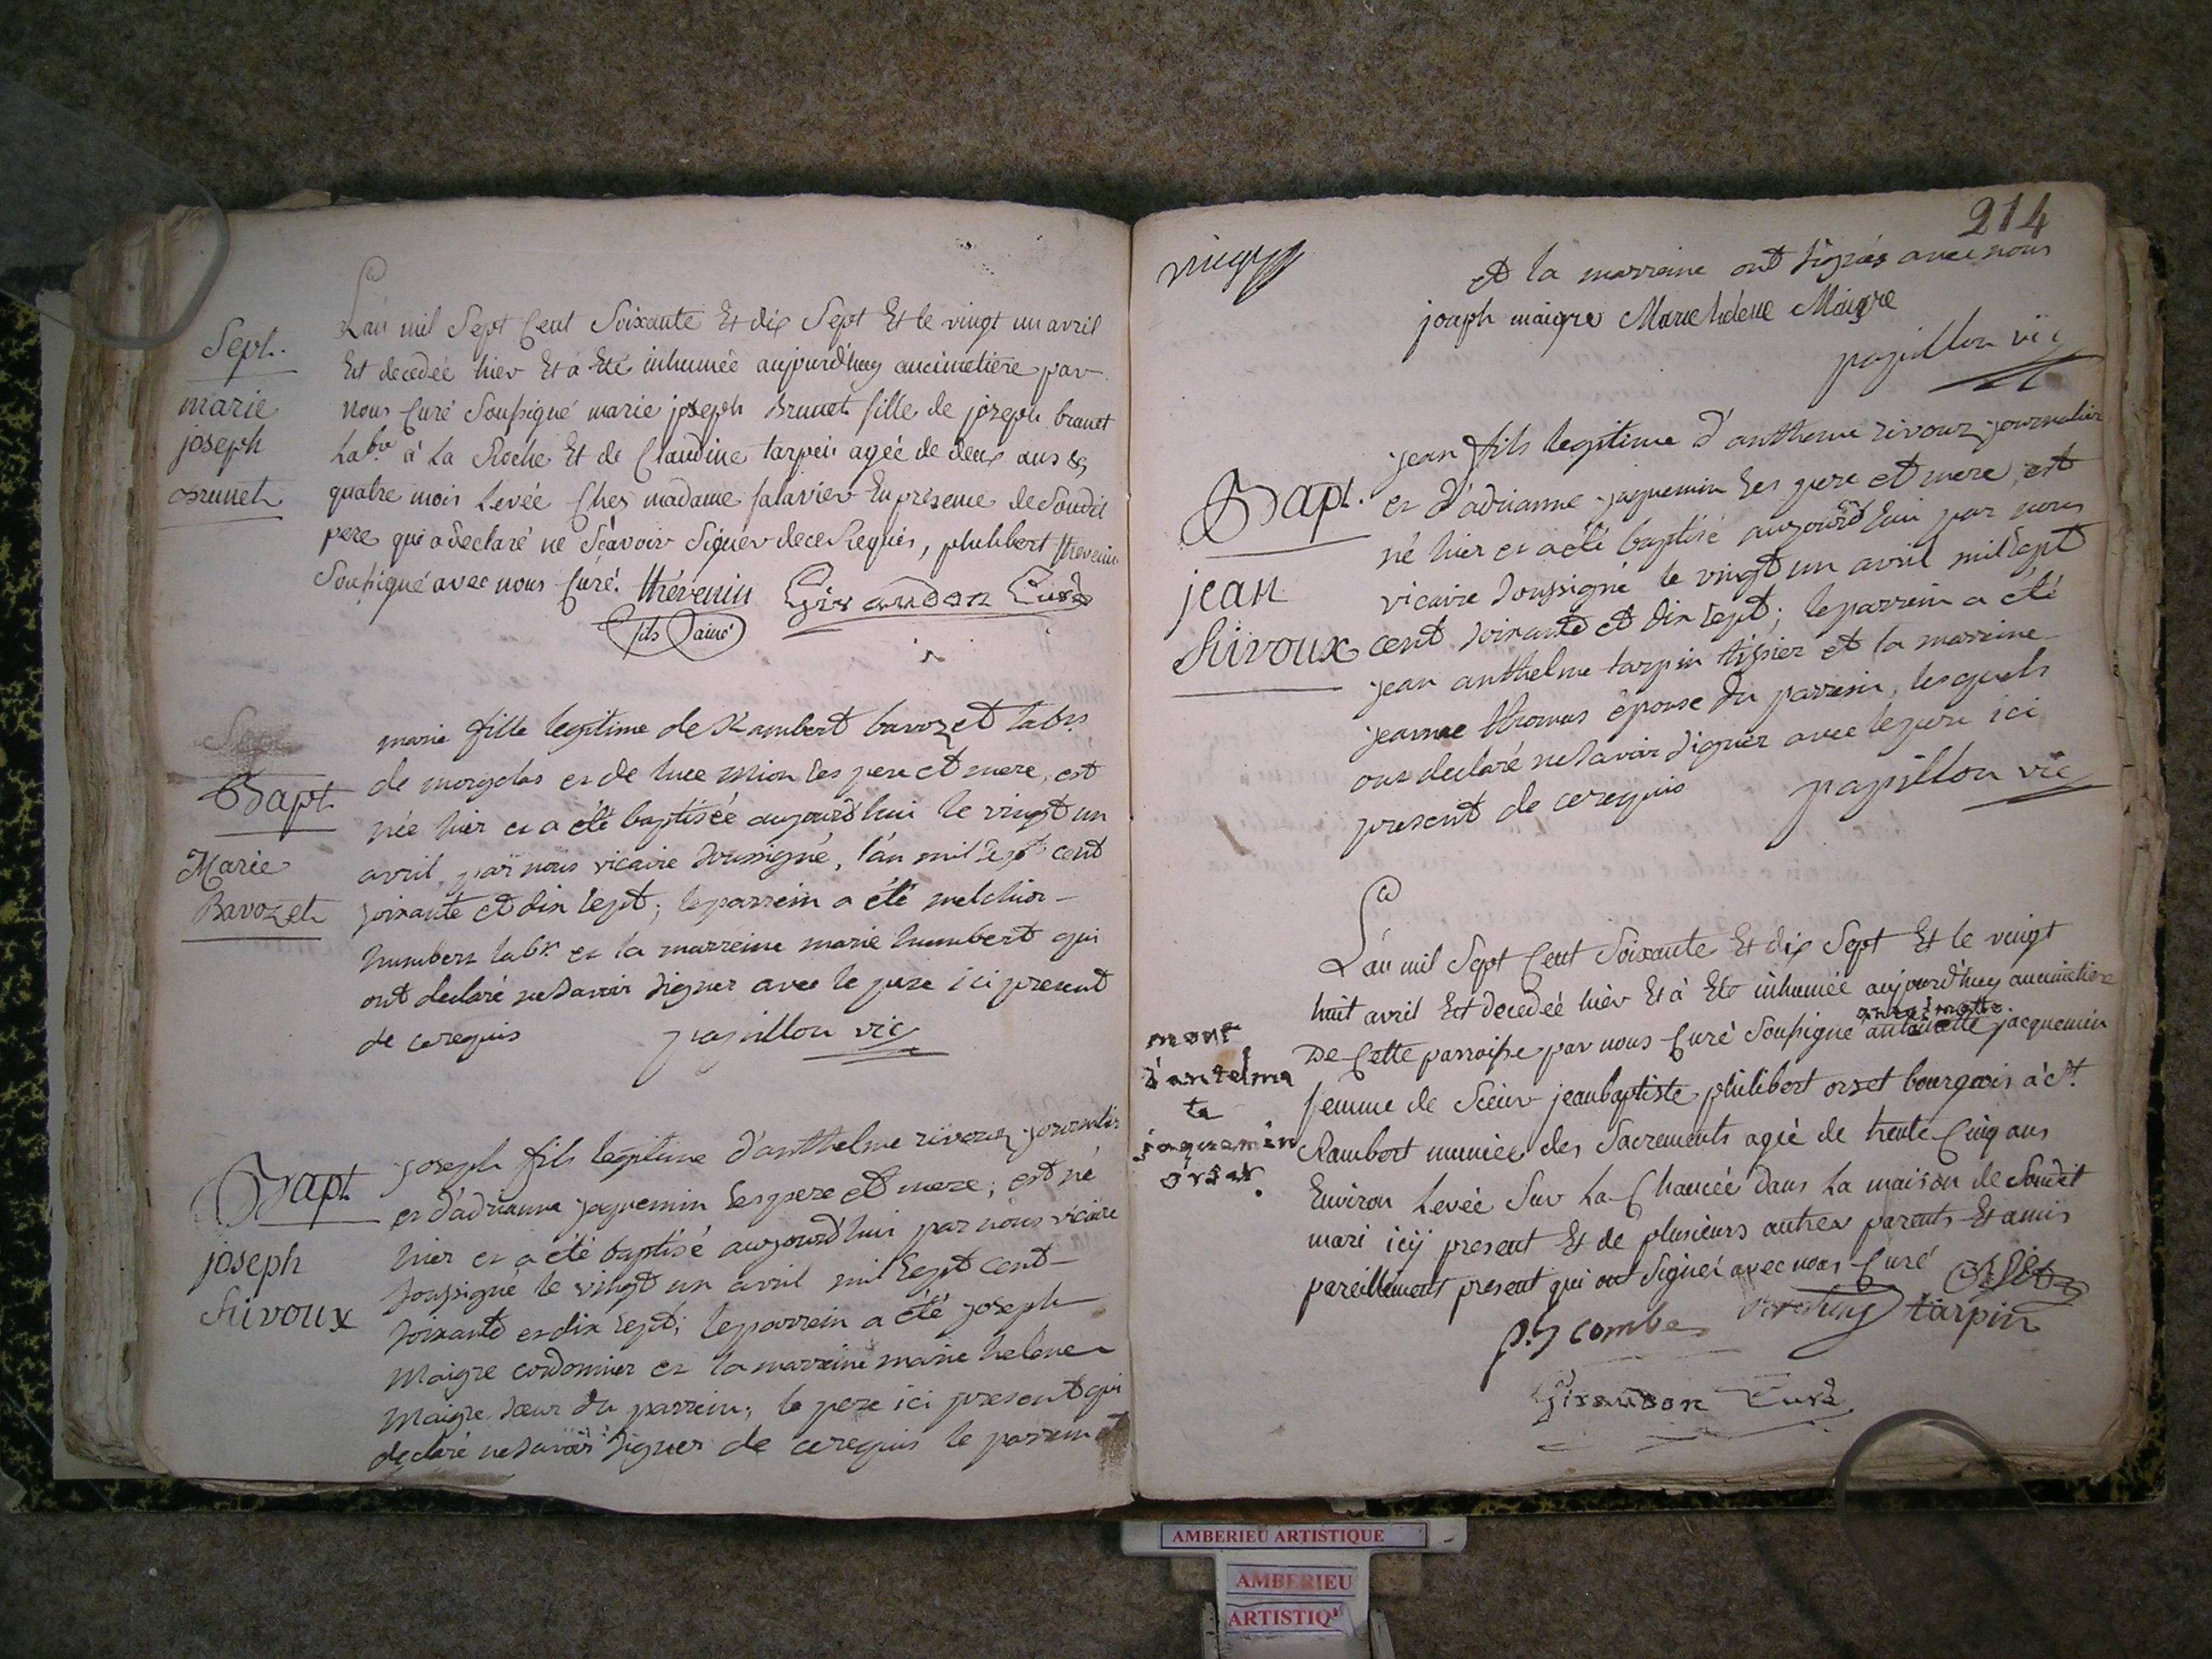 Sept.
marie
joseph
Brunet
L'an mil Sept Cent Soixante Et dix Sept Et le vingt un avril
Est decedée hier Et a Eté inhumée aujourd'huy au cimetiere par
nous Curé Soussigné marie joseph Brunet fille de joseph brunet
Labr. à La Roche Et de Claudine tarpin agée de deux ans &
quatre mois Levée Chez madame Salavier En présence de Soudit
pere qui a declaré ne Sçavoir Signer de ce Requis, philibert thevenin
Soussigné avec nous Curé. thévenin Giraudon Curé
fils ainé
Bapt.
Marie
Bavozet
marie fille legitime de Rambert bavozet labr.
de morgelas et de luce Mion ses pere et mere, est
née hier et a été baptisée aujourd'hui le vingt un
avril, par nous vicaire soussigné, l'an mil sept cent
soixante et dix sept; le parrein a été melchior
humbert labr. et la marreine marie humbert qui
ont declaré ne savoir signer avec le pere ici present
de ce requis papillon vic
Bapt
joseph
Rivoux
joseph fils legitime d'anthelme rivoux journalier
et d'adrianne jaquemin ses pere et mere; est né
hier et a été baptisé aujourd'hui par nous vicaire
soussigné le vingt un avril mil sept cent
soixante et dix sept; le parrein a été joseph
Maigre cordonnier et la marreine marie helene
Maigre sœur du parrein; le pere ici present qui
declaré ne savoir signer de ce requis le parrein et
214
et la marreine ont signés avec nous
joseph maigre Marie helene Maigre
papillon vic
Bapt.
jean
Rivoux
jean fils legitime d'anthelme rivoux journalier
et d'adrianne jaquemin ses pere et mere est
né hier et a été baptisé aujourd'hui par nous
vicaire soussigné le vingt un avril mil sept
cent soixante et dix sept; le parrein a été
jean anthelme tarpin tissier et la marreine
jeanne thomas épouse du parrein, lesquels
ont declaré ne savoir signer avec le pere ici
present de ce requis papillon vic
mort
d'antelma
te
jaquemin
orset.
L'an mil Sept Cent Soixante Et dix Sept Et le vingt
huit avril Est decedée hier Et à Eté inhumée aujourd'huy au cimetiere
antelmette
De Cette parroisse par nous Curé Soussigné antoinette jacquemin
femme de Sieur jean baptiste philibert orset bourgeois à St.
Rambert muniée des Sacrements agée de trente Cinq ans
Environ Levée Sur La Chancée dans La maison de Soudit
mari icy present Et de plusieurs autres parents Et amis
pareillement present qui ont Signés avec nous Curé Orset
p. J combe tarpin
Giraudon Curé
AMBERIEU ARTISTIQUE
AMBERIEU
ARTISTIQ